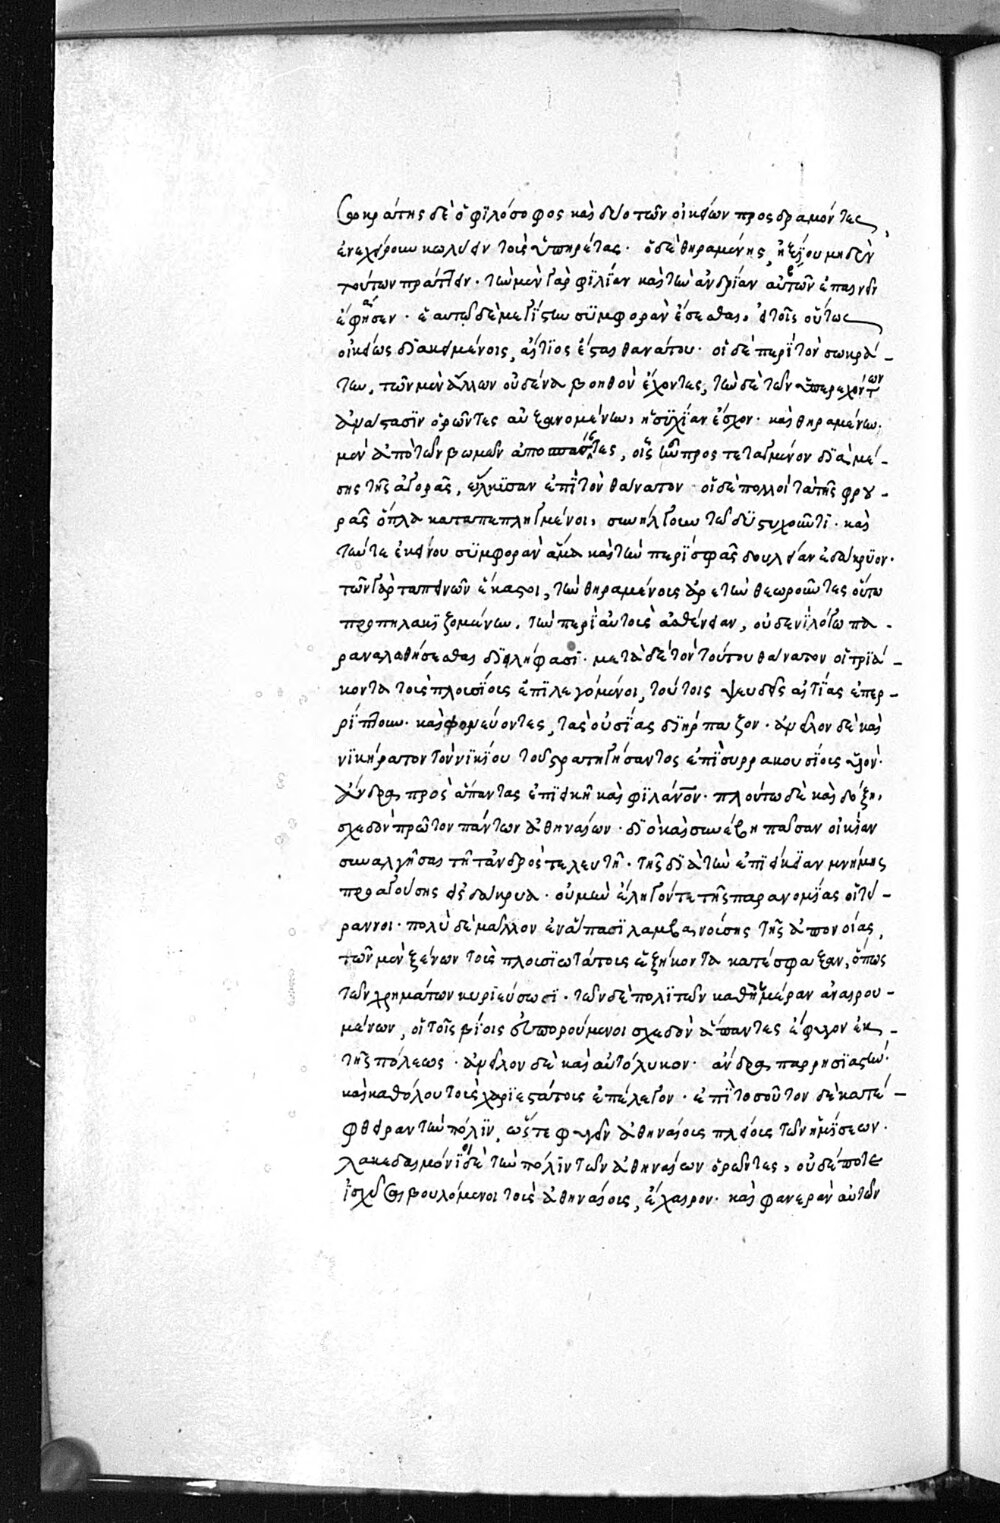 Σωκράτης δὲ ὁ φϊλόσοφος καὶ δύο τῶν οἰκείων προσδραμόντες,
ἐνεχείρουν κωλύειν τοὺς ὑπηρέτας· ὁ δὲ θηραμένης, ἠξίου μηδὲν
τούτων πράττειν· τὴν μὲν γὰρ φϊλίαν καὶ τὴν ἀνδρίαν αὐτῶν ἐπαινεῖν
ἔφησεν· ἑαυτῷ δὲ μεγίστην σϋμφορὰν ἔσεσθαι, εἰ τοῖς οὕτως
οἰκείως διακειμένοις, αἴτϊος ἔσται θανάτου· οἱ δὲ περὶ τὸν σωκρά-
την, τῶν μὲν ἄλλων οὐδένα βοηθὸν ἔχοντες, τὴν δὲ τῶν ὑπερεχόντων
ἀνάτασϊν ὁρῶντες αὐξανομένην, ἡσϋχίαν ἔσχον· καὶ θηραμένην
μὲν ἀπὸ τῶν βωμῶν ἀποσπάσαντες, οἷς ἦν προστεταγμένον διὰ μέ-
σης τῆς ἀγορᾶς, εἵλκϋσαν ἐπὶ τὸν θάνατον· οἱ δὲ πολλοὶ τὰ τῆς φρου-
ρᾶς ὅπλα καταπεπληγμένοι, συνήλγουν τῷ δϋστυχοῦντι· καὶ
τήν τε ἐκείνου σϋμφορὰν ἅμα καὶ τὴν περὶ σφᾶς δουλείαν ἐδάκρϋον·
τῶν γὰρ ταπεινῶν ἕκαστοι, τὴν θηραμένους ἀρετὴν θεωροῦντες οὕτω
προπηλακϊζομένην, τὴν περὶ αὐτοὺς ἀσθένειαν, οὐδενὶ λόγω πα-
ραναλωθήσεσθαι διειλήφασϊ· μετὰ δὲ τὸν τούτου θάνατον οἱ τριά-
κοντα τοὺς πλουσίους ἐπϊλεγόμενοι, τούτοις ψευδεῖς αἰτίας ἐπερ-
ρίπτουν· καὶ φονεύοντες, τὰς οὐσίας διήρπαζον· ἀνεῖλον δὲ καὶ
νϊκήρατον τὸν νϊκίου τοῦ στρατηγήσαντος ἐπὶ συρρακουσίους υἱόν·
ἄνδρα πρὸς ἅπαντας ἐπιεικῆ καὶ φϊλάνον· πλούτω δὲ καὶ δόξη,
σχεδὸν πρῶτον πάντων ἀθηναίων· διὸ καὶ συνέβη πᾶσαν οἰκίαν
συναλγῆσαι τῆ τἀνδρὸς τελευτῆ· τῆς διὰ τὴν ἐπιείκειαν μνήμης
προαγούσης εἰς δάκρυα· οὐ μὴν ἔληγόν τε τῆς παρανομίας οἱ τύ-
ραννοι· πολὺ δὲ μᾶλλον ἐν ἅπασϊ λαμβανούσης τῆς ἀπονοίας,
τῶν μὲν ξένων τοὺς πλουσϊωτάτους ἑξήκοντα κατέσφαξαν, ὅπως
τῶν χρημάτων κυρϊεύσωσϊ· τῶν δὲ πολϊτῶν καθ' ἡμέραν ἀναιρου-
μένων, οἱ τοῖς βίοις εὐπορούμενοι σχεδὸν ἅπαντες ἔφυγον ἐκ
τῆς πόλεως· ἀνεῖλον δὲ καὶ αὐτόλυκον· ἄνδρα παρρησϊαστήν·
καὶ καθόλου τοὺς χαριεστάτους ἐπέλεγον· ἐπὶ τοσοῦτον δὲ κατέ-
φθειραν τὴν πόλϊν, ὥστε φυγεῖν ἀθηναίους πλείους τῶν ἡμίσεων·
λακεδαιμόνϊοι δὲ τὴν πόλϊν τῶν ἀθηναίων ὁρῶντες, οὐδέποτε
ἰσχῦσαι βουλόμενοι τοὺς ἀθηναίους, ἔχαιρον· καὶ φανερὰν αὐτῶν